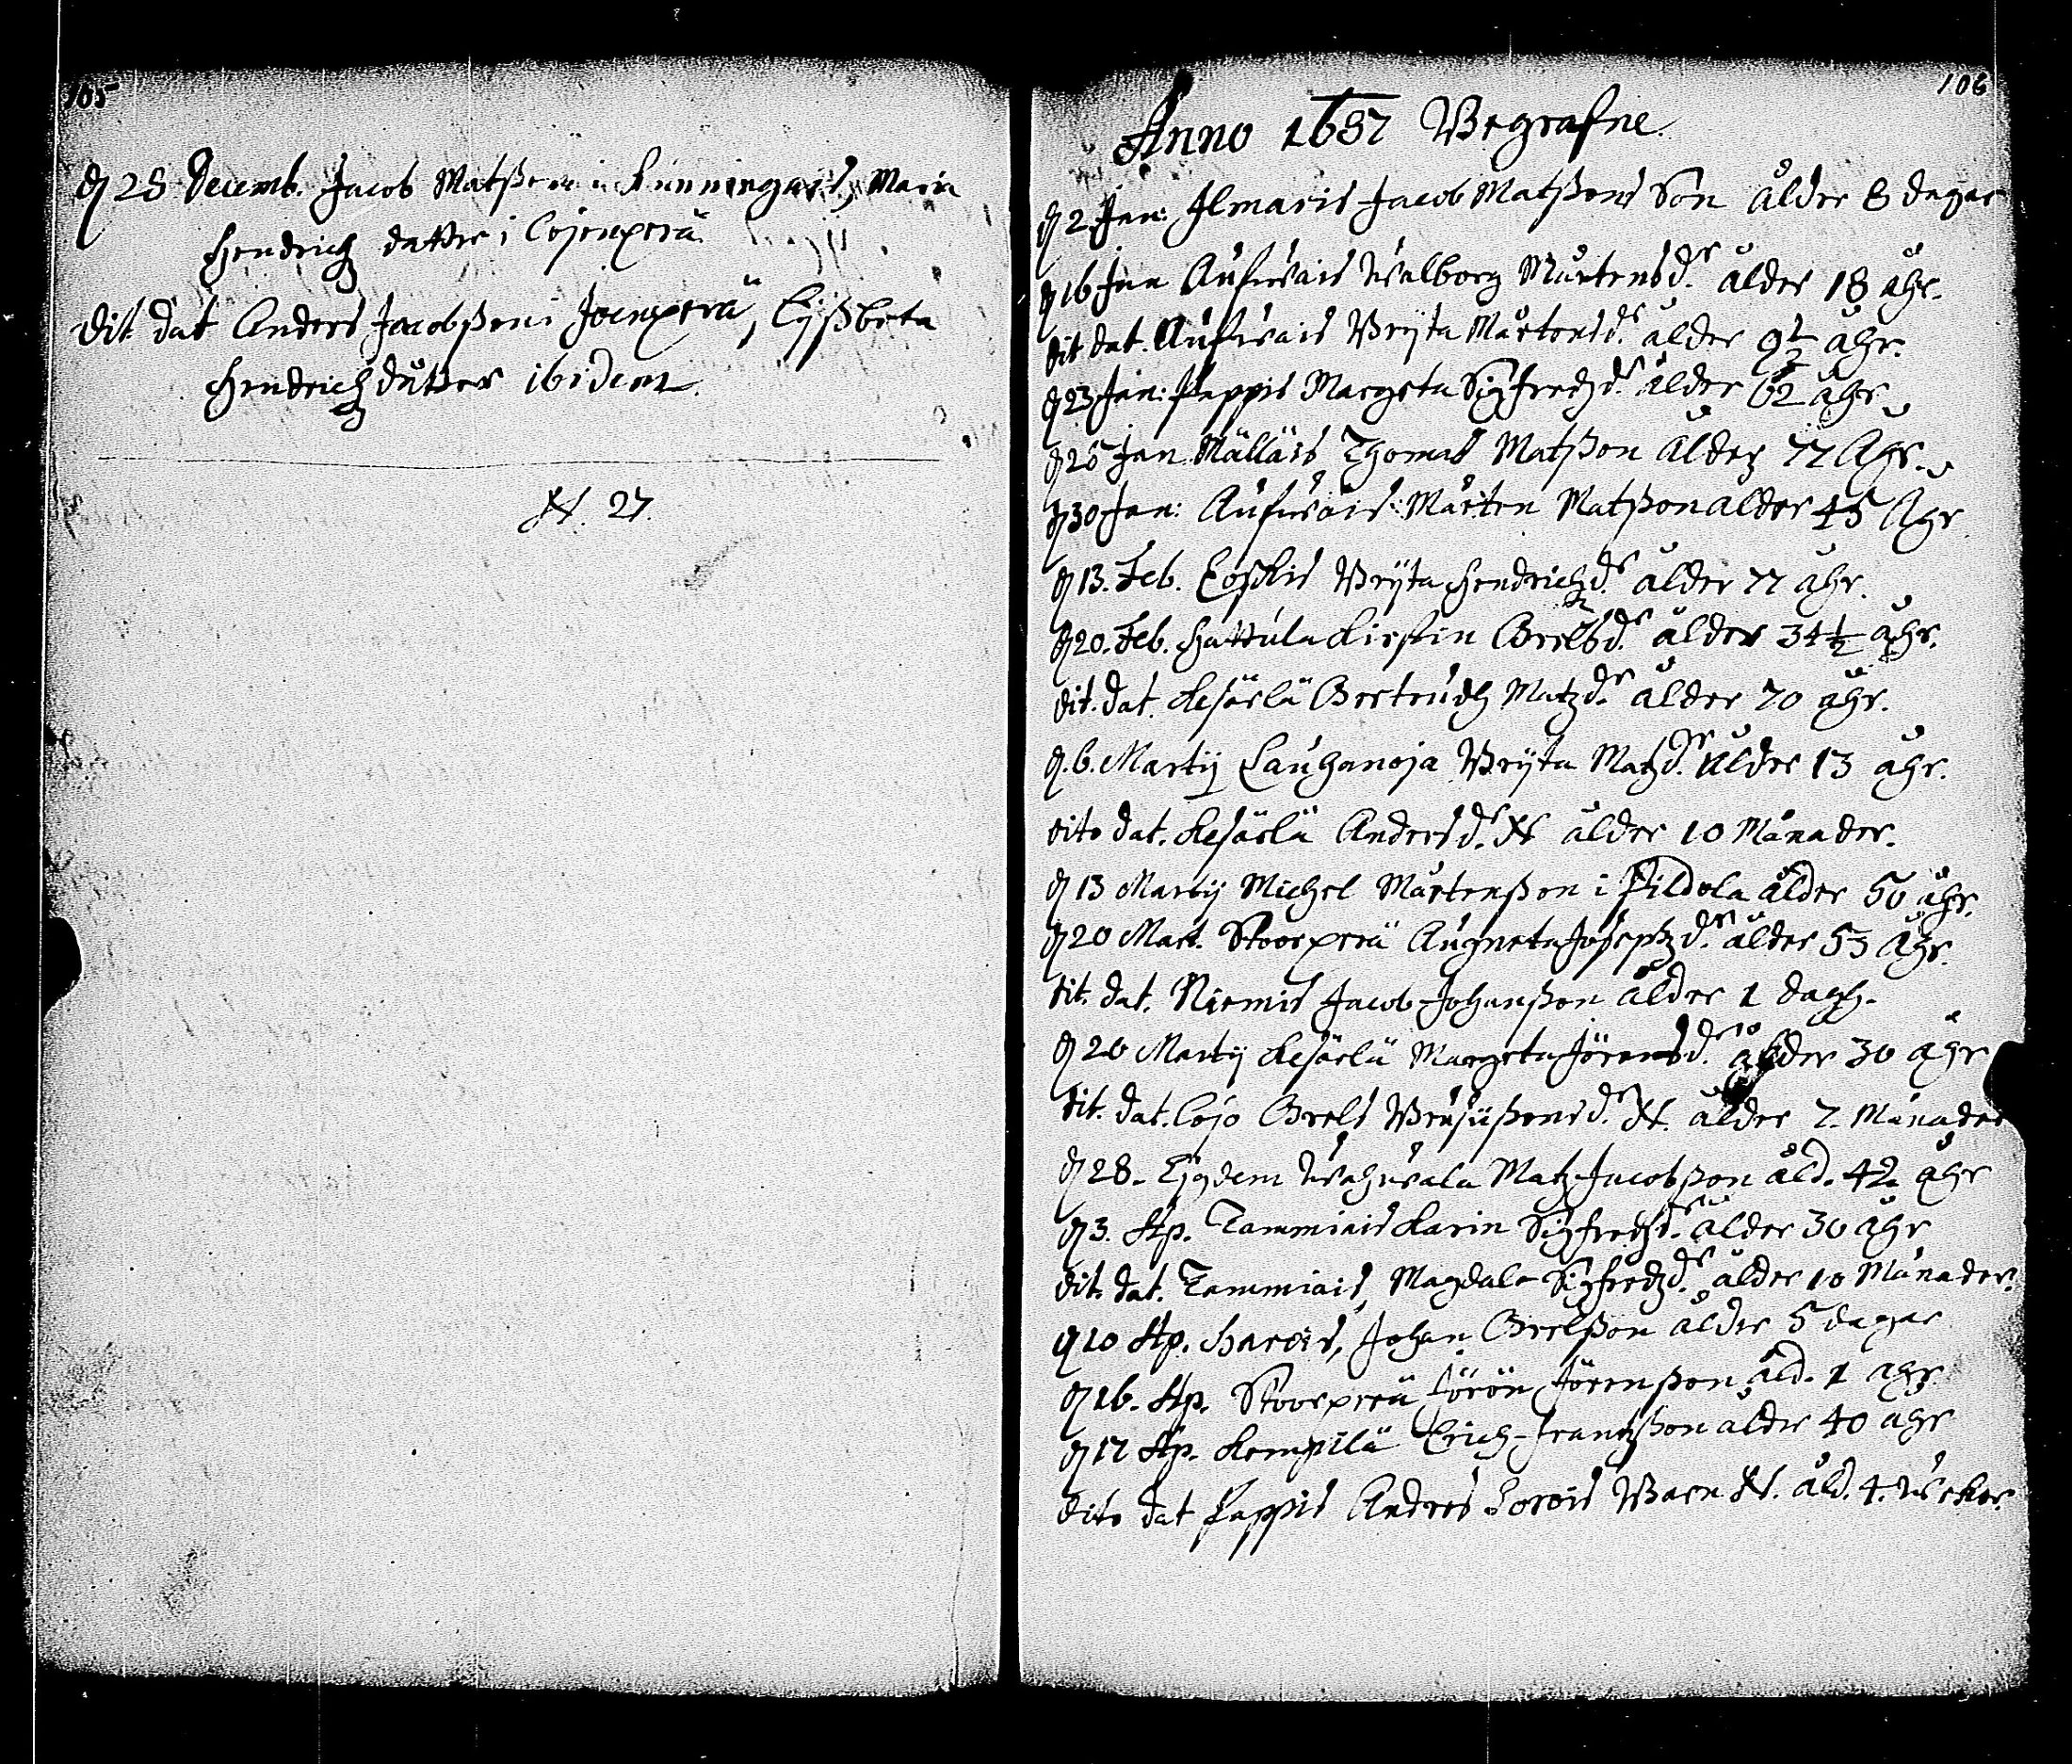 105
d 28 Decemb. Jacob Matßon i Kunningais, Maria
Hendrichz datter i Cojonperä
Dit. dat Anders Jacobßon i Joenperä, Lijßbeta
Hendrichzdåtter ibidem.
N. 27.
106
Anno 1687 Begrafne
d 2 Jan: Ilmaris Jacob Matßons Son ålder 8 dagar
d 16 Jan Aufwais Walborg Mårtensdr. ålder 18 åhr.
dit dat. Aufwais Brijta Mårtensdr. ålder 9½ åhr.
d 23 Jan: Pappis Margeta Sigfredzdr. ålder 62 åhr
d 25 Jan Mälläis Thomas Matßon ålder 77 Åhr.
d 30 Jan: Aufwais: Mårten Matßon ålder 45 Åhr
d 13. Feb. Coskis Brijta Hendrichzdr. ålder 77 åhr.
d 20. Feb. Hattula Kirstin Grelsdr. ålder 34½ åhr.
dit. dat. Kesärlä Gertrudh Matzdr. ålder 70 åhr.
d. 6. Martij Lauhanoja Brijta Matzdr. ålder 13 åhr.
dito dat. Kesärlä Andersdr. N ålder 10 Månader.
d 13 Martij Michel Mårtenßon i Pildola ålder 50 åhr.
d 20 Mart. Stoorperä Augneta Josephzdr. ålder 53 åhr.
dit. dat. Niemis Jacob Johanßon ålder 1 dagh.
d 20 Martij Kesärlä Margeta Jöransdr. ålder 30 åhr
dit. dat. Cojo Grels Brusiußonsdr. N. ålder 7. Månader
d 28. Ejqdem Wahwala Matz Jacobßon åld. 42 åhr
d 3. Ap. Tammiais Karin Sigfredzdr. ålder 30 åhr
dit. dat. Tammiais, Magdale Sigfredzdr. ålder 10 Månader.
d 10 Ap. Harois, Johan Grelßon ålder 5 dagar
d 16. Ap. Stoorperä Jörön Jörenßon åld. 1 åhr
d 17 Ap. Kempilä Erich Frantzßon ålder 40 åhr
dito dat Pappis Andres Sorois Barn N. åld. 4. wekor.